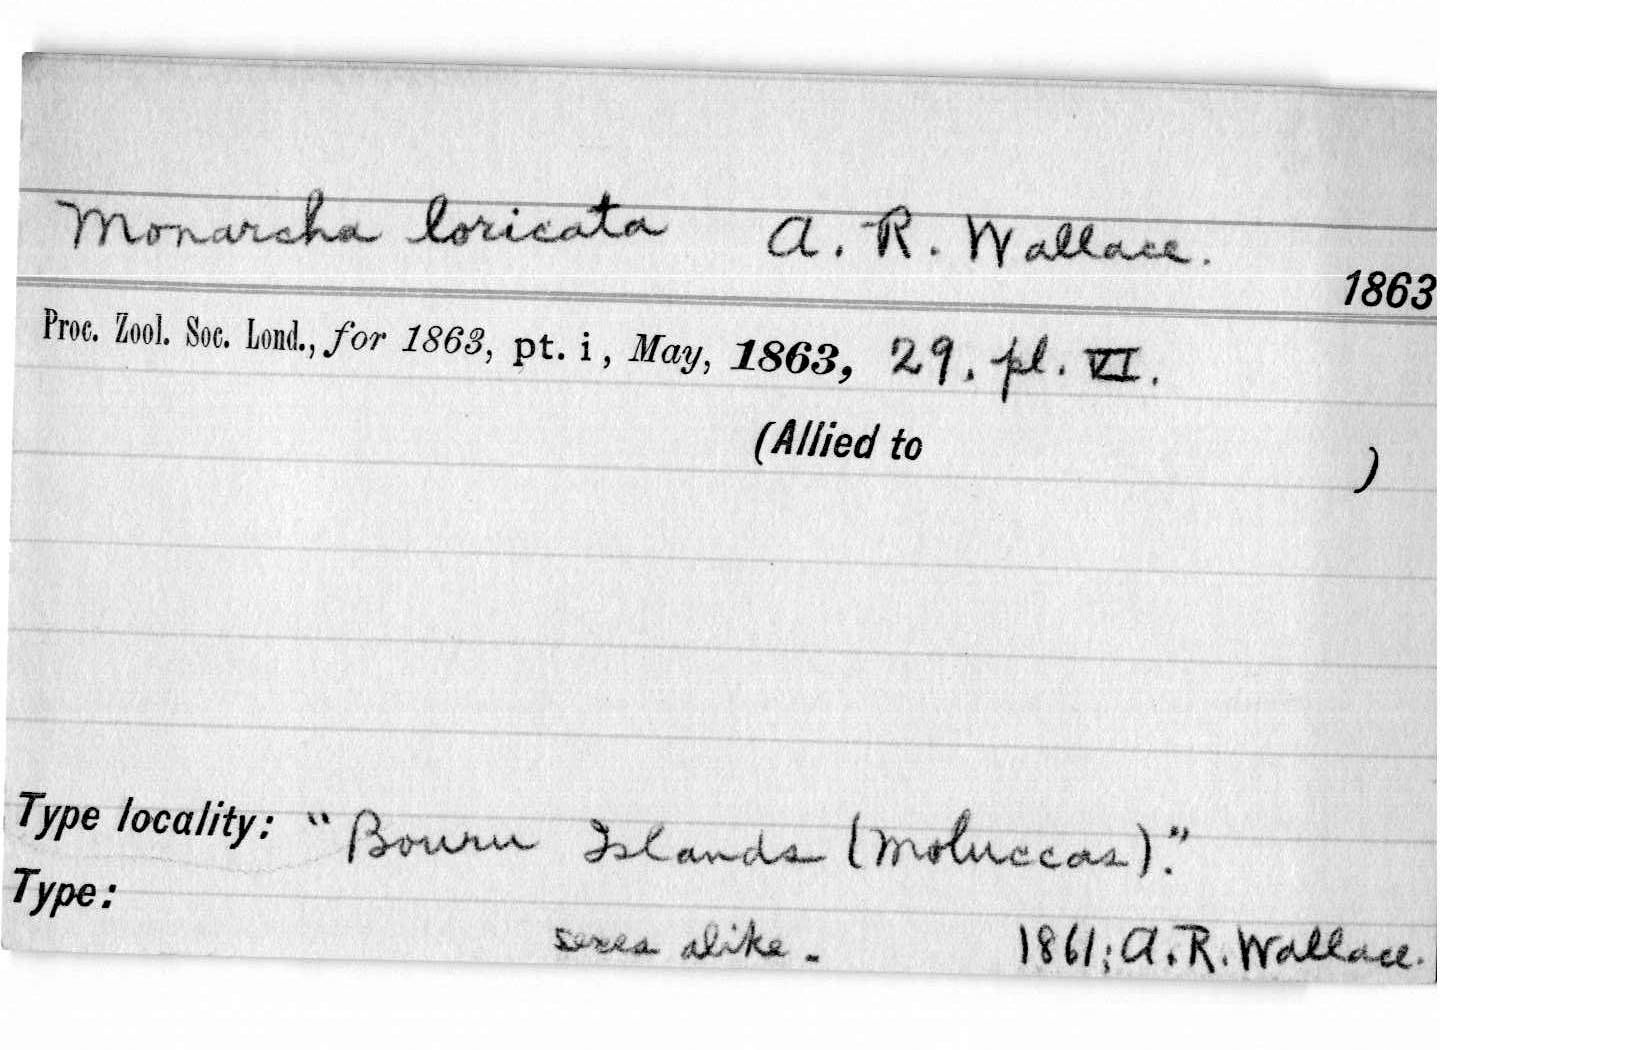 Monarcha loricata A. R. Wallace.
1863
Proc. Zool. Soc. Lond., for 1863, pt. i, May, 1863, 29. pl. VI.
(Allied to )
Type locality: "Bouru Islands (Moluccas)."
Type:
sexes alike. 1861; A. R. Wallace.